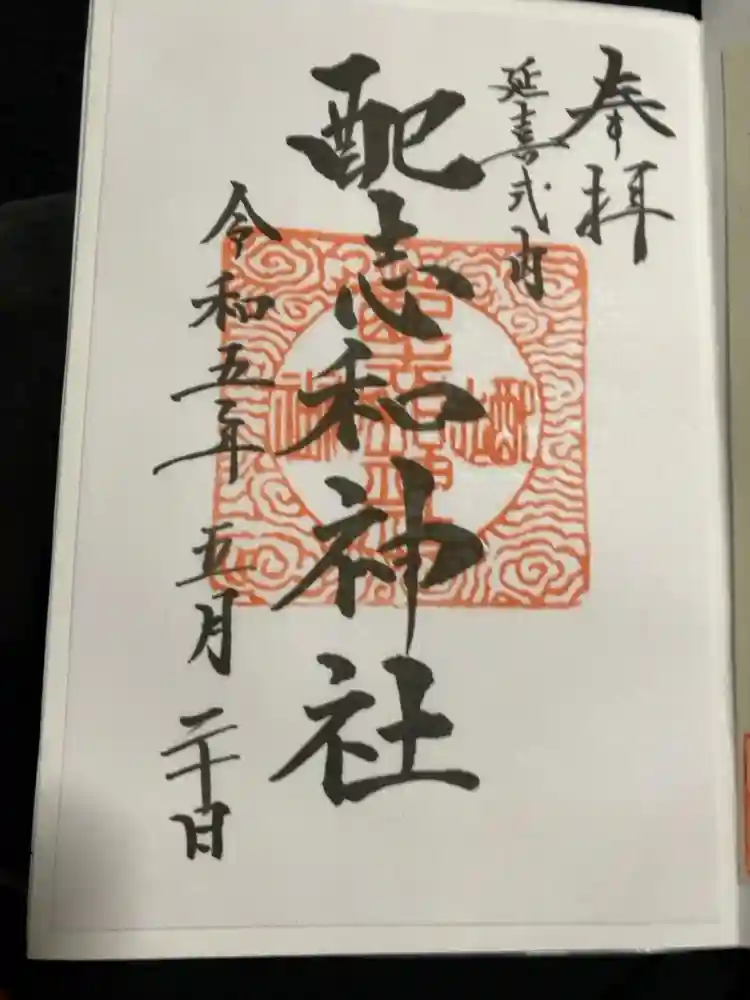 奉拝
延喜式内
配志和神社
令和五年五月二十日